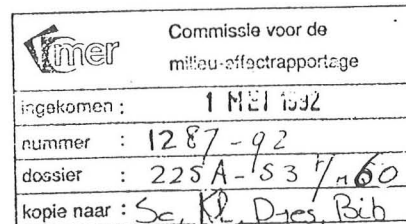 mer
Commissie voor de
milieu-effectrapportage
ingekomen : 1 MEI 1992
nummer : 1287-92
dossier : 225A-53 t/m 60
kopie naar : Sc, Kl, Djes, Bib